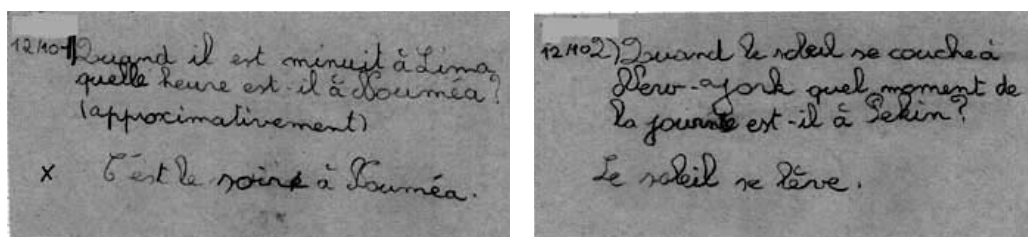 12/10 1) Quand il est minuit à Lima,
quelle heure est-il à Nouméa?
(approximativement)
x C'est le soire à Nouméa.
12/10 2) Quand le soleil se couche à
New-York quel moment de
la journée est-il à Pekin?
Le soleil se lève.